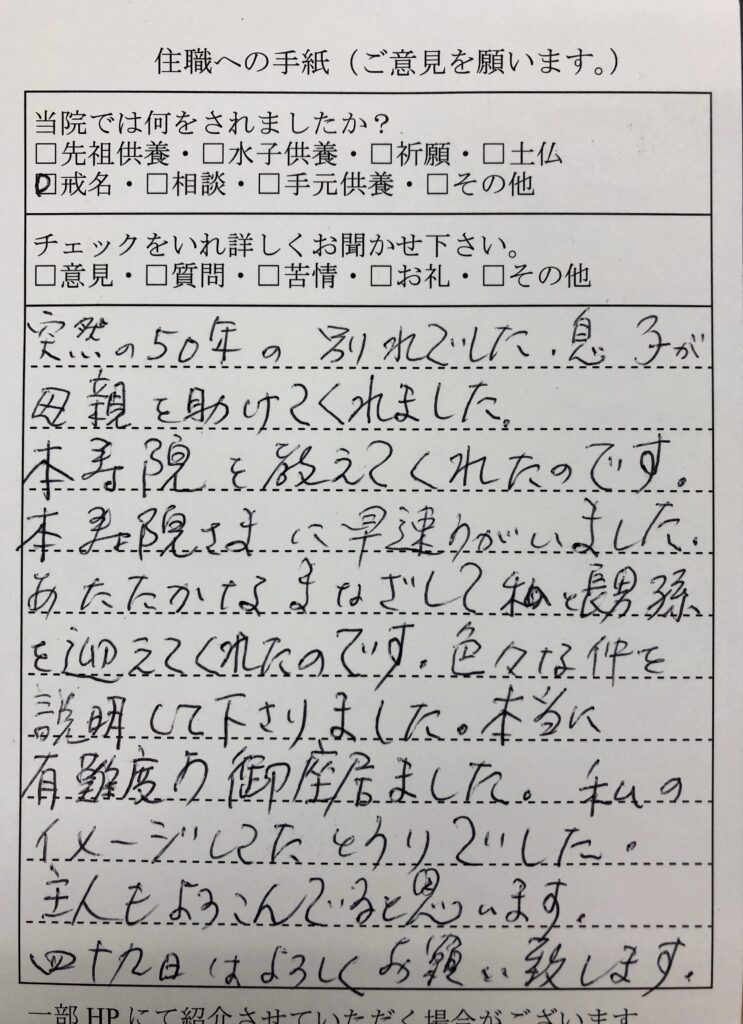 住職への手紙（ご意見を願います。）
当院では何をされましたか？
□先祖供養・□水子供養・□祈願・□土仏
□戒名・□相談・□手元供養・□その他
チェックをいれ詳しくお聞かせ下さい。
□意見・□質問・□苦情・□お礼・□その他
突然の50年の別れでした．息子が
母親を助けてくれました。
本寿院を教えてくれたのです。
本寿院さまに早速うがいました．
あたたかなるまなざしで私と長男孫
を迎えてくれたのです．色々な件を
説明して下さりました。本当に
有難度う御座居ました。私の
イメージしてたとうりでした．
主人もよろこんでると思います．
四十九日はよろしくお願い致します．
一部HPにて紹介させていただく場合がございます